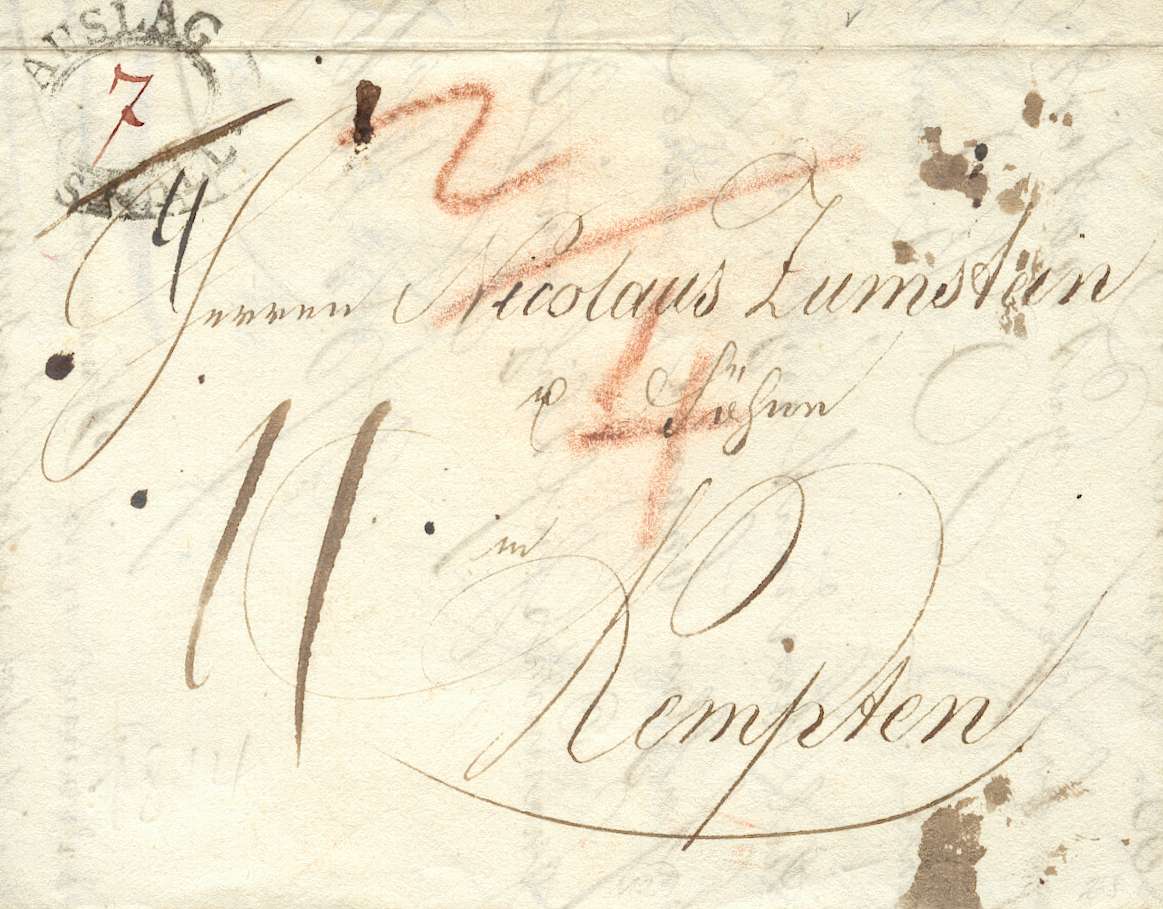 AUSLAG
7
4
2
Herren Nicolaus Zumstein
4
Söhne
11
in
Kempten